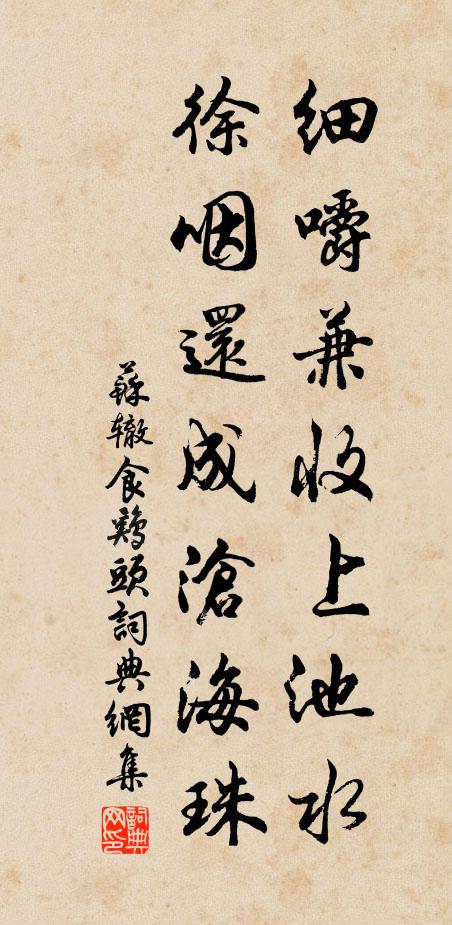 細嚼兼收上池水
徐咽還成滄海珠
蘇轍食鷄頭詞典網集
詞典網印